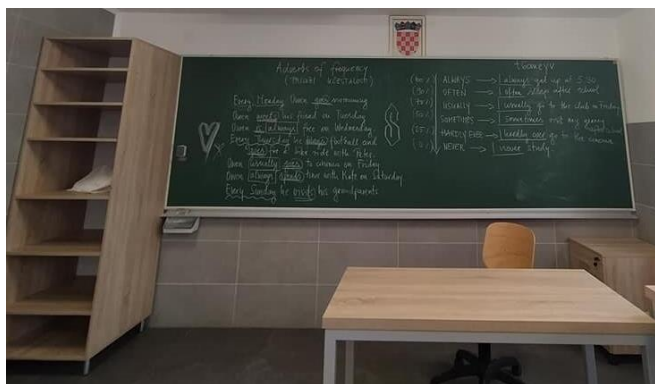 Adverbs of frequency
Every Monday Owen goes swimming
Owen meets his friend on Tuesday
Owen is always free on Wednesday
Every Thursday he plays football and
goes for a bike ride with Peter.
Owen usually goes to cinema on Friday
Owen always spends time with Kate on Saturday
Every Sunday he visits his grandparents
ALWAYS → I always get up at 5:30
OFTEN → I often sleep after school
USUALLY → I usually go to the club on Friday
SOMETIMES → I sometimes visit my granny
HARDLY EVER → I hardly ever go to the cinema
NEVER → I never study